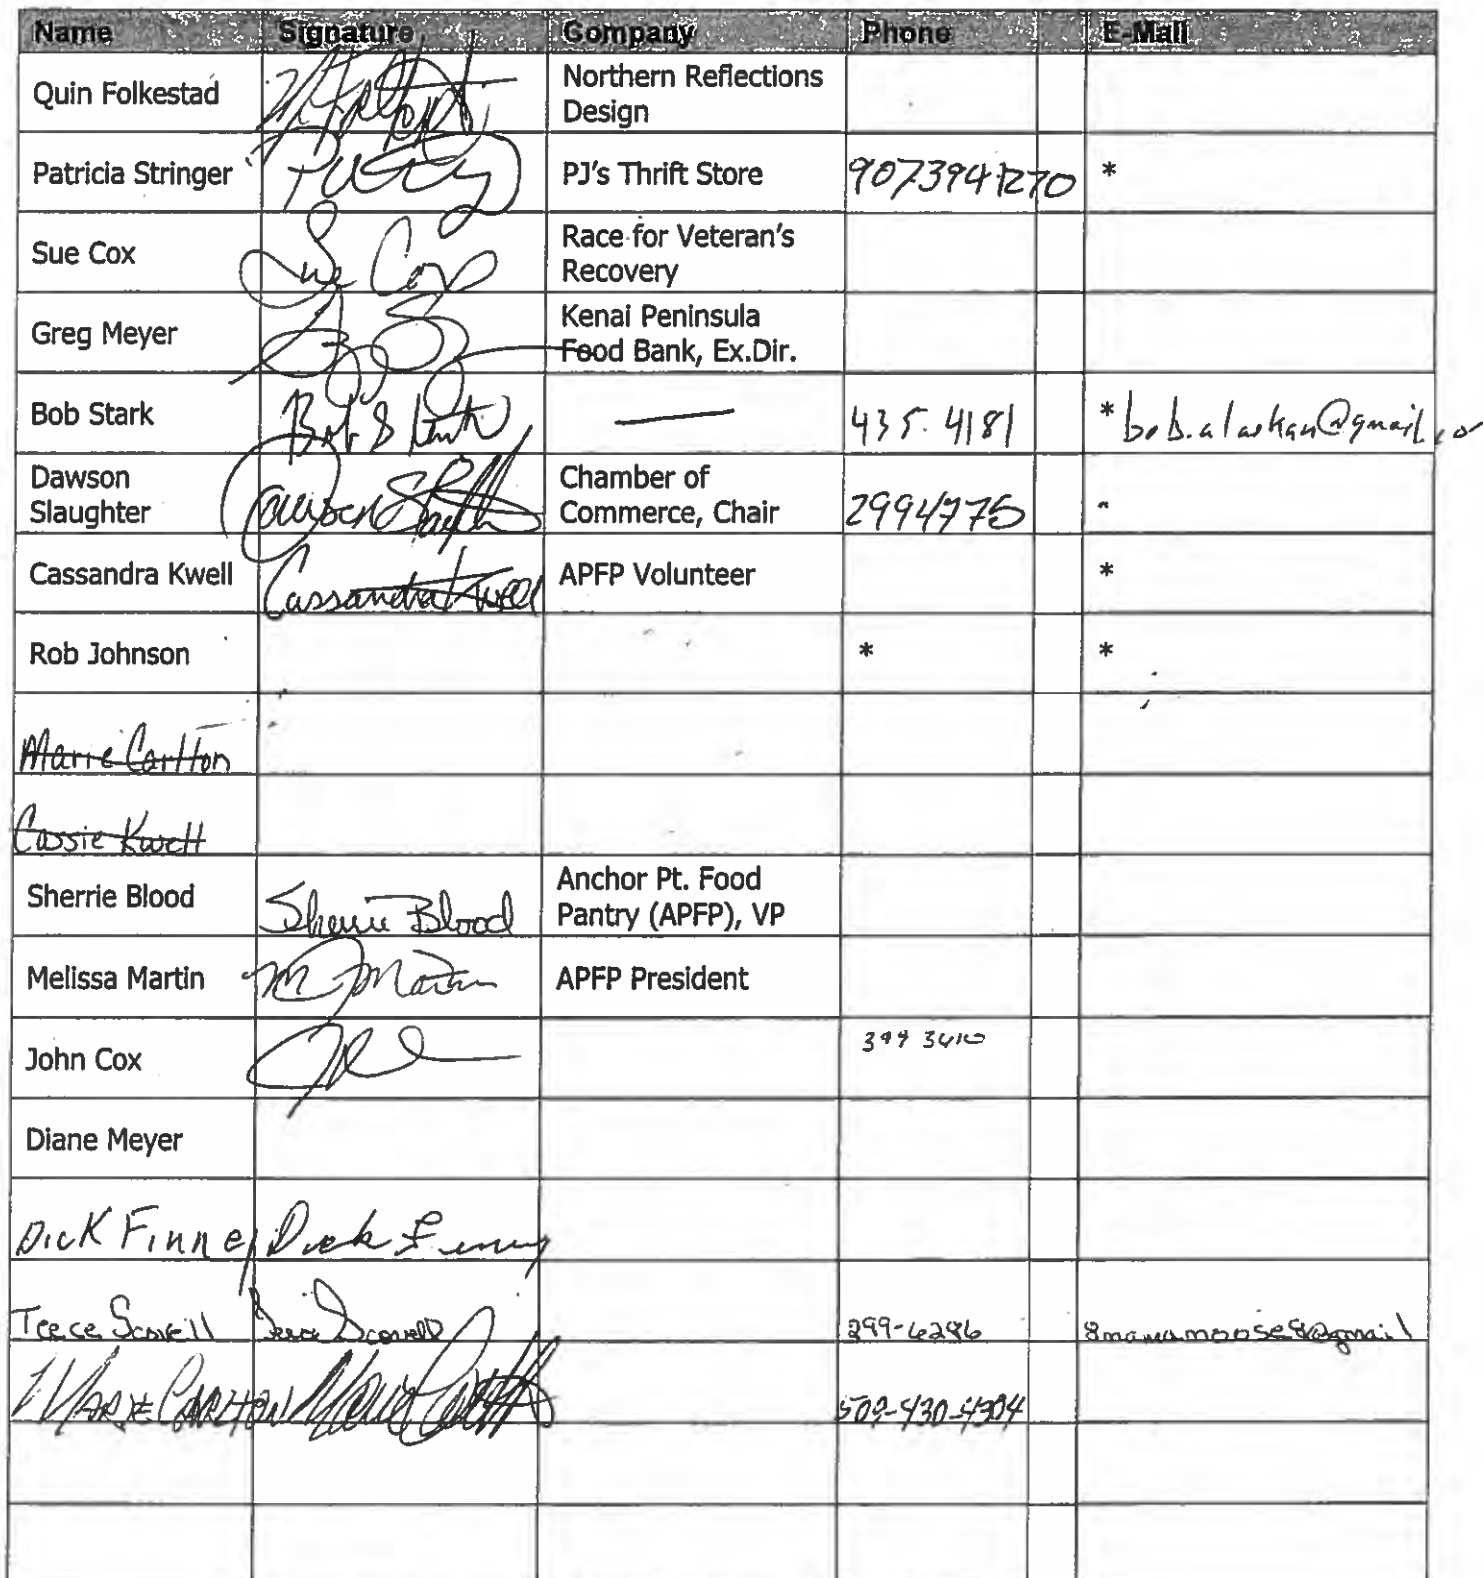 Name Signature Company Phone E-Mail
Quin Folkestad Northern Reflections
Design
Patricia Stringer Patty PJ's Thrift Store 9073941270 *
Sue Cox Sue Cox Race for Veteran's
Recovery
Greg Meyer Kenai Peninsula
Food Bank, Ex.Dir.
Bob Stark Bob Stark — 435.4181 * bob.alaskan@gmail.co
Dawson
Slaughter Dawson Slaughter Chamber of
Commerce, Chair 2994775 *
Cassandra Kwell Cassandra Kwell APFP Volunteer *
Rob Johnson * *
Marie Carlton
Cassie Kwell
Sherrie Blood Sherrie Blood Anchor Pt. Food
Pantry (APFP), VP
Melissa Martin M Martin APFP President
John Cox
Diane Meyer
Dick Finney Dick Finney
Teece Scovell Teece Scovell 299-6286 8mamamoose8@gmail
Marie Carlton Marie Carlton 509-430-4304